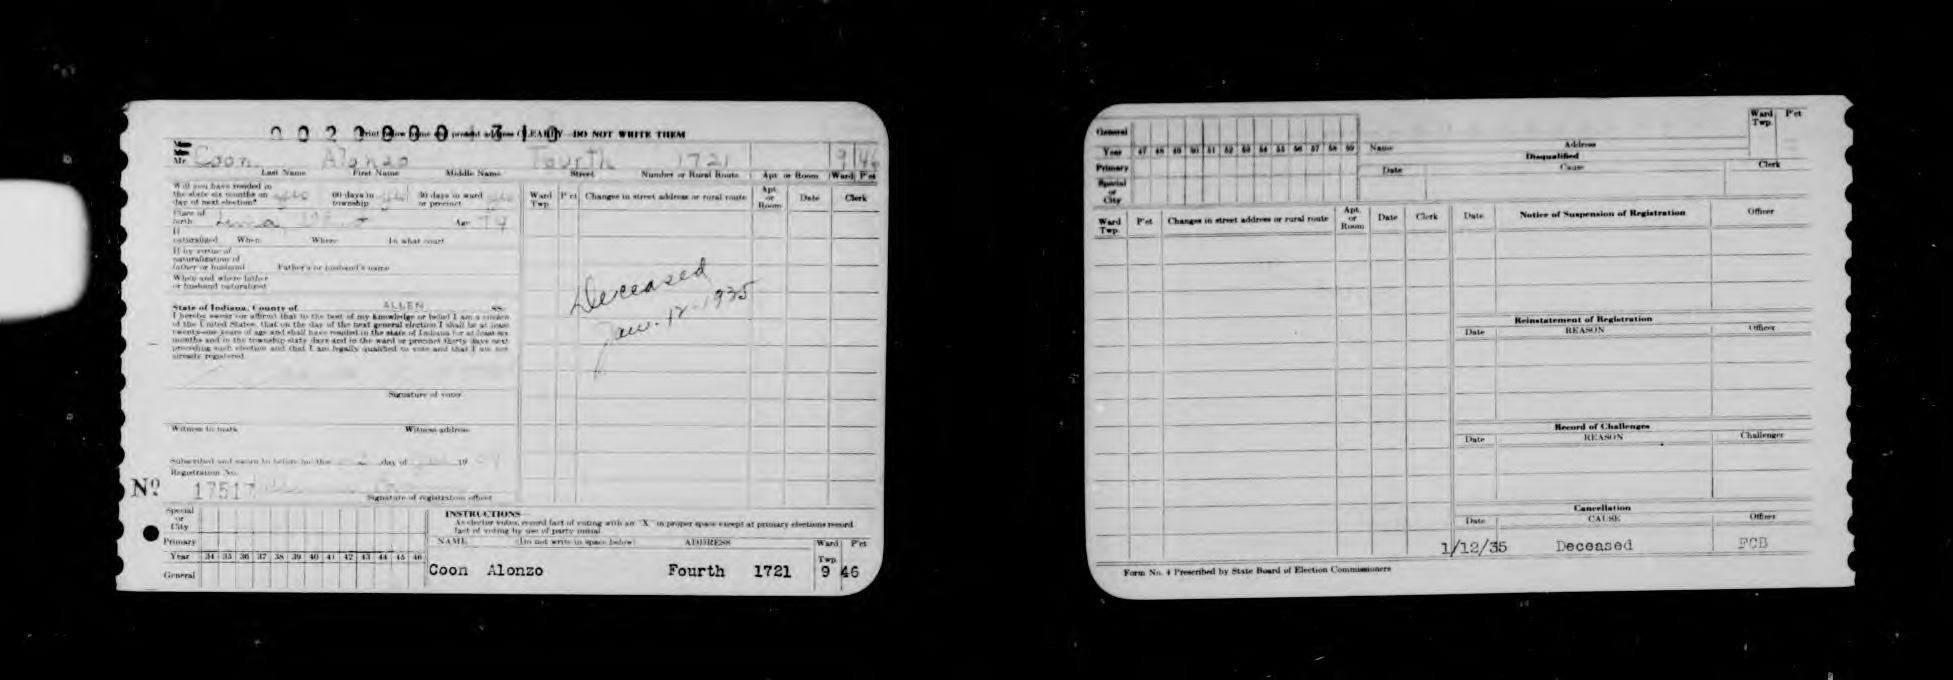 00200001310
Print Your Name and present address CLEARLY—DO NOT WRITE THEM
Mr. Coon Alonzo Fourth 1721 9 46
Last Name First Name Middle Name Street Number or Rural Route Apt. or Room Ward P'ct
Will you have resided in
the state six months on
day of next election?
60 days in
township
30 days in ward
or precinct
Place of
birth
Age 74
If
naturalized When Where In what court
If by virtue of
naturalization of
father or husband Father's or husband's name
When and where father
or husband naturalized
State of Indiana, County of ALLEN ss.
I hereby swear (or affirm) that to the best of my knowledge or belief I am a citizen
of the United States, that on the day of the next general election I shall be at least
twenty-one years of age and shall have resided in the state of Indiana for at least six
months and in the township sixty days and in the ward or precinct thirty days next
preceding such election and that I am legally qualified to vote and that I am not
already registered.
Signature of voter
Witness to mark Witness address
Subscribed and sworn to before me this day of 19
Registration No.
No 17517
Signature of registration officer
Ward
Twp. P'ct Changes in street address or rural route Apt.
or
Room Date Clerk
Deceased
Jan. 12-1935
Special
or
City
Primary
Year 34 35 36 37 38 39 40 41 42 43 44 45 46
General
INSTRUCTIONS—
As elector votes, record fact of voting with an "X" in proper space except at primary elections record
fact of voting by use of party initial.
NAME (Do not write in space below) ADDRESS Ward
Twp. P'ct
Coon Alonzo Fourth 1721 9 46
General
Year 47 48 49 50 51 52 53 54 55 56 57 58 59
Primary
Special
or
City
Name Address Ward
Twp. P'ct
Disqualified
Date Cause Clerk
Ward
Twp. P'ct Changes in street address or rural route Apt.
or
Room Date Clerk
Date Notice of Suspension of Registration Officer
Reinstatement of Registration
Date REASON Officer
Record of Challenges
Date REASON Challenger
Cancellation
Date CAUSE Officer
1/12/35 Deceased FCB
Form No. 4 Prescribed by State Board of Election Commissioners